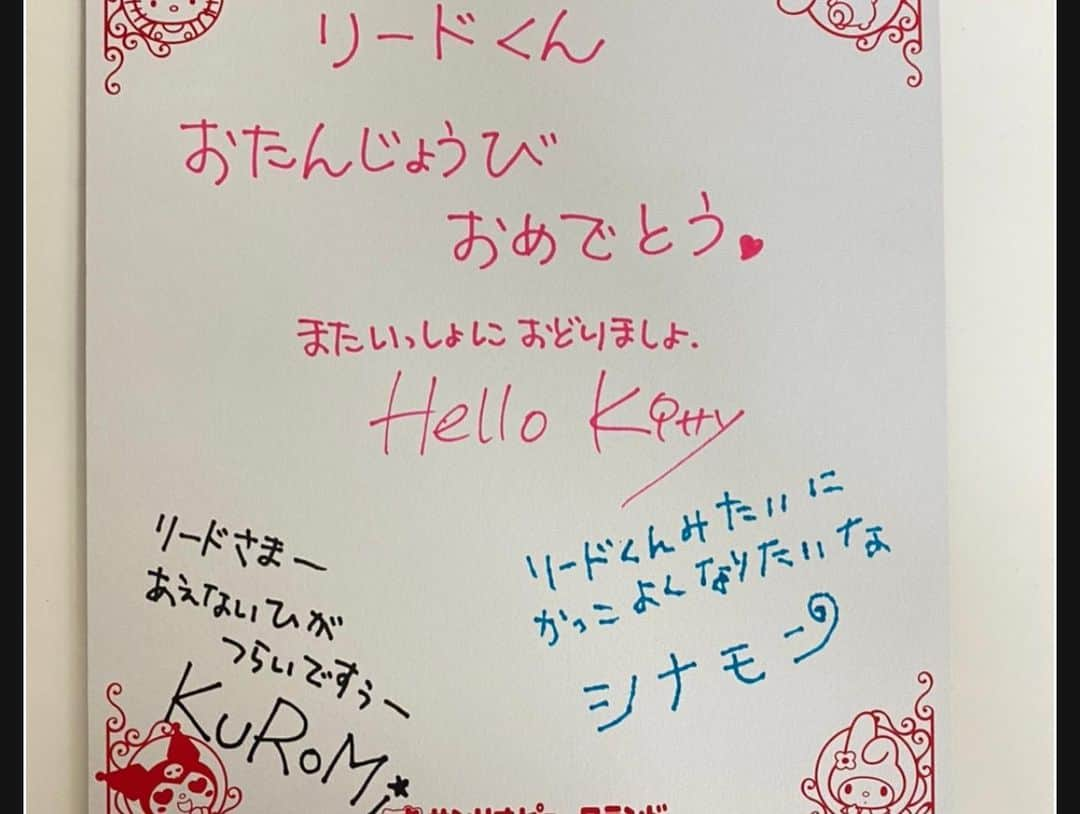 リードくん
おたんじょうび
おめでとう♥
またいっしょに おどりましょ.
Hello Kitty
リードさまー
あえないひが
つらいですぅー
KUROMi
リードくんみたいに
かっこよくなりたいな
シナモン
サンリオピューロランド